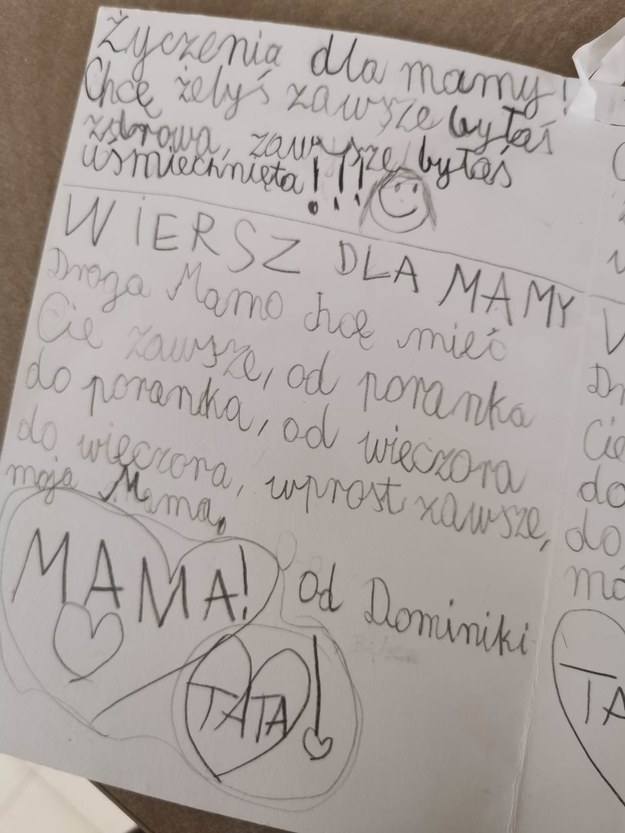 Życzenia dla mamy!
Chcę żelyś zawsze byłaś
zdrowa, zawsze byłaś
uśmiechnięta!!!
WIERSZ DLA MAMY
Droga Mamo chcę mieć
Cię zawsze, od poranka
do poranka, od wieczora
do więczora, wprost zawsze,
moja Mamo,
MAMA!
od Dominiki
TATA!
Dr
Cie
do
do
mó
TA